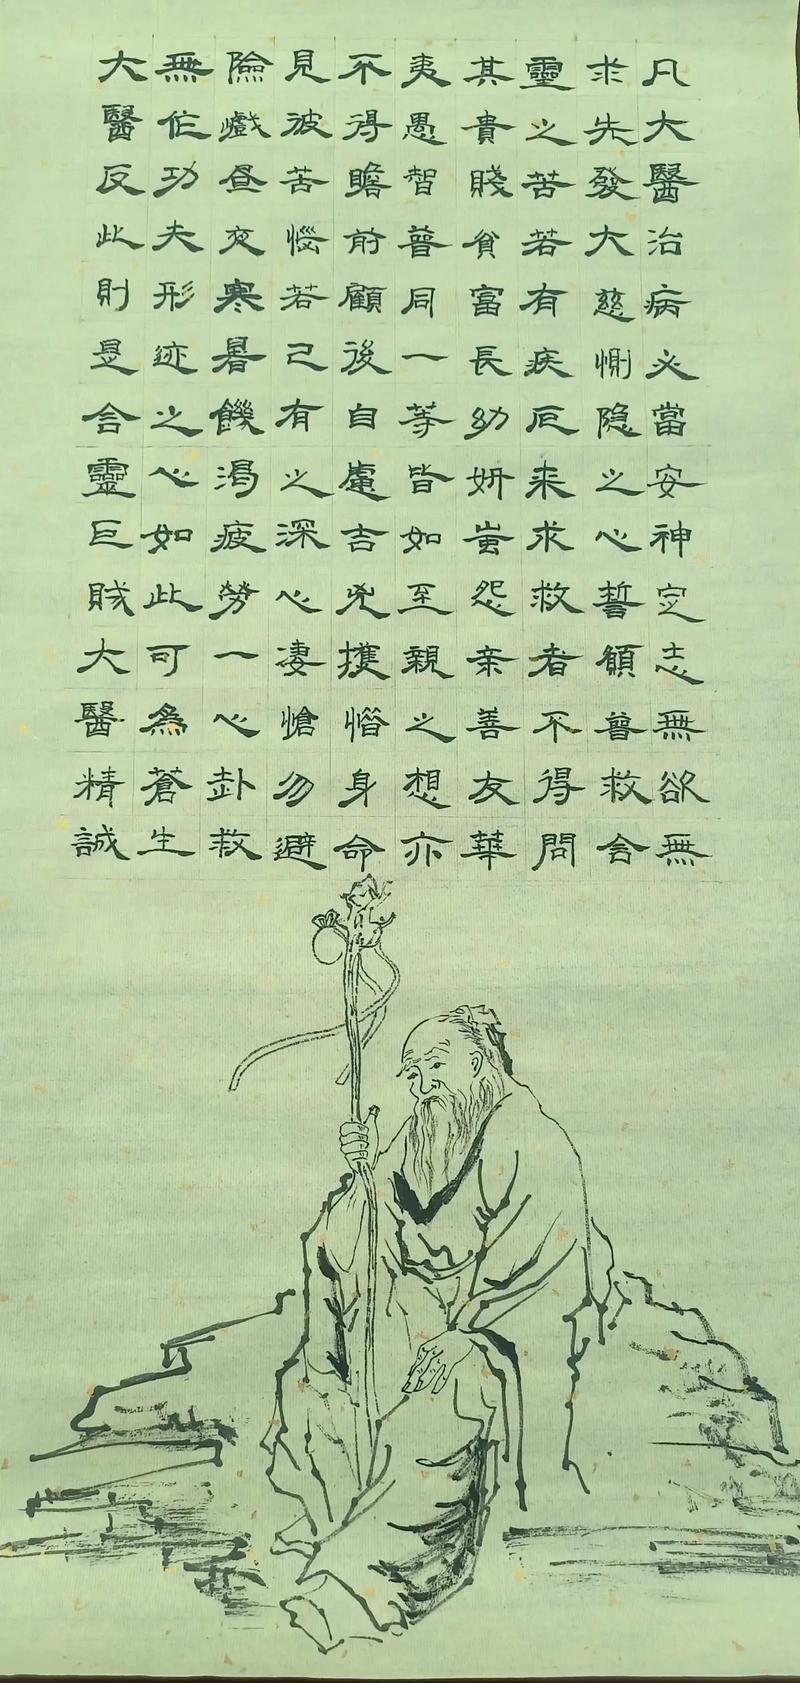 凡大醫治病必當安神定志無欲無
求先發大慈惻隐之心誓願普救含
靈之苦若有疾厄来求救者不得問
其貴賤貧富長幼妍蚩怨亲善友華
夷愚智普同一等皆如至親之想亦
不得瞻前顧後自慮吉兇護惜身命
見彼苦惱若己有之深心凄愴勿避
險巇昼夜寒暑饑渴疲勞一心赴救
無作功夫形迹之心如此可為蒼生
大醫反此則是含靈巨賊大醫精誠